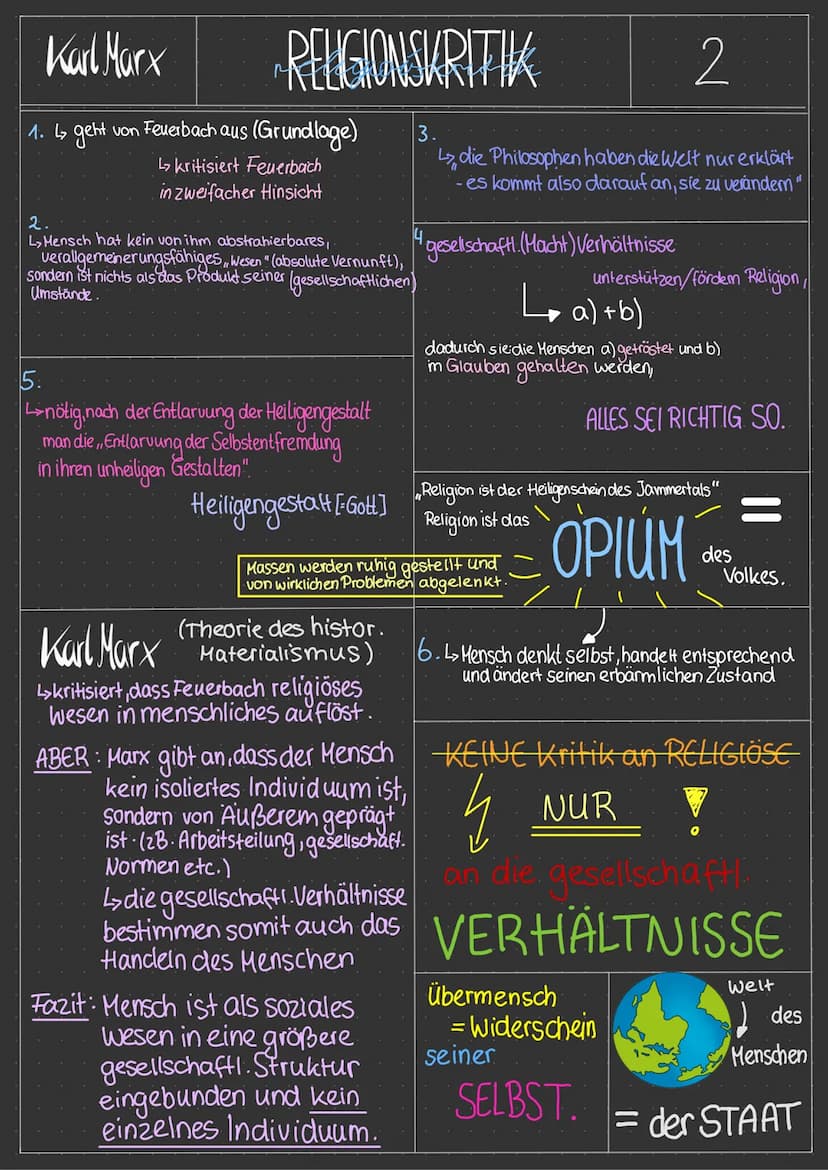 Karl Marx
RELIGIONSKRITIK
religionskritik
2
1. ↳ geht von Feuerbach aus (Grundlage)
↳ kritisiert Feuerbach
in zweifacher Hinsicht
2.
↳ Mensch hat kein von ihm abstrahierbares,
verallgemeinerungsfähiges „Wesen" (absolute Vernunft),
sondern ist nichts als das Produkt seiner (gesellschaftlichen)
Umstände.
3.
↳ „die Philosophen haben die Welt nur erklärt
- es kommt also darauf an, sie zu verändern"
4 gesellschaftl. (Macht) Verhältnisse
unterstützen/fördern Religion,
↳ a) + b)
dadurch sie: die Menschen a) getröstet und b)
im Glauben gehalten werden,
ALLES SEI RICHTIG SO.
5.
↳ nötig, nach der Entlarvung der Heiligengestalt
man die „Entlarvung der Selbstentfremdung
in ihren unheiligen Gestalten".
Heiligengestalt [=Gott]
„Religion ist der Heiligenschein des Jammertals" =
Religion ist das
OPIUM
des
Volkes.
Massen werden ruhig gestellt und
von wirklichen Problemen abgelenkt.
6. ↳ Mensch denkt selbst, handelt entsprechend
und ändert seinen erbärmlichen Zustand
Karl Marx
(Theorie des histor.
Materialismus)
↳ kritisiert, dass Feuerbach religiöses
Wesen in menschliches auflöst.
ABER: Marx gibt an, dass der Mensch
kein isoliertes Individuum ist,
sondern von Äußerem geprägt
ist. (zB. Arbeitsteilung, gesellschaft.
Normen etc.)
↳ die gesellschaftl. Verhältnisse
bestimmen somit auch das
Handeln des Menschen
Fazit: Mensch ist als soziales
Wesen in eine größere
gesellschaftl. Struktur
eingebunden und kein
einzelnes Individuum.
KEINE Kritik an RELIGIÖSE
NUR !
an die gesellschaftl.
VERHÄLTNISSE
Übermensch
= Widerschein
seiner
SELBST.
Welt
des
Menschen
= der STAAT